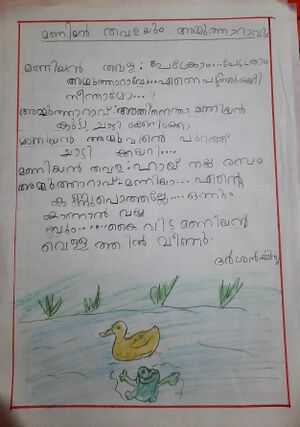 മണിയൻ തവളയും അമ്മുത്താറാവും
മണിയൻ തവള: പേക്രോം....പേക്രോം
അമ്മുത്താറാവേ...എന്നെ
നീന്താമോ...?
അമ്മുത്താറാവ്: അതിനെന്താ മണിയൻ
ചാടി
മണിയൻ അമ്മുവിന്റെ പുറത്ത്
ചാടി കയറി....
മണിയൻ തവള: ഹായ് നല്ല രസം
അമ്മുത്താറാവ്- മണിയാ... എന്റെ
കണ്ണുപൊത്തല്ലേ.... ഒന്നും
കാണാൻ വയ്യ
ബ്ലും........കൈ വിട്ട മണിയൻ
വെള്ളത്തിൽ വീണു.